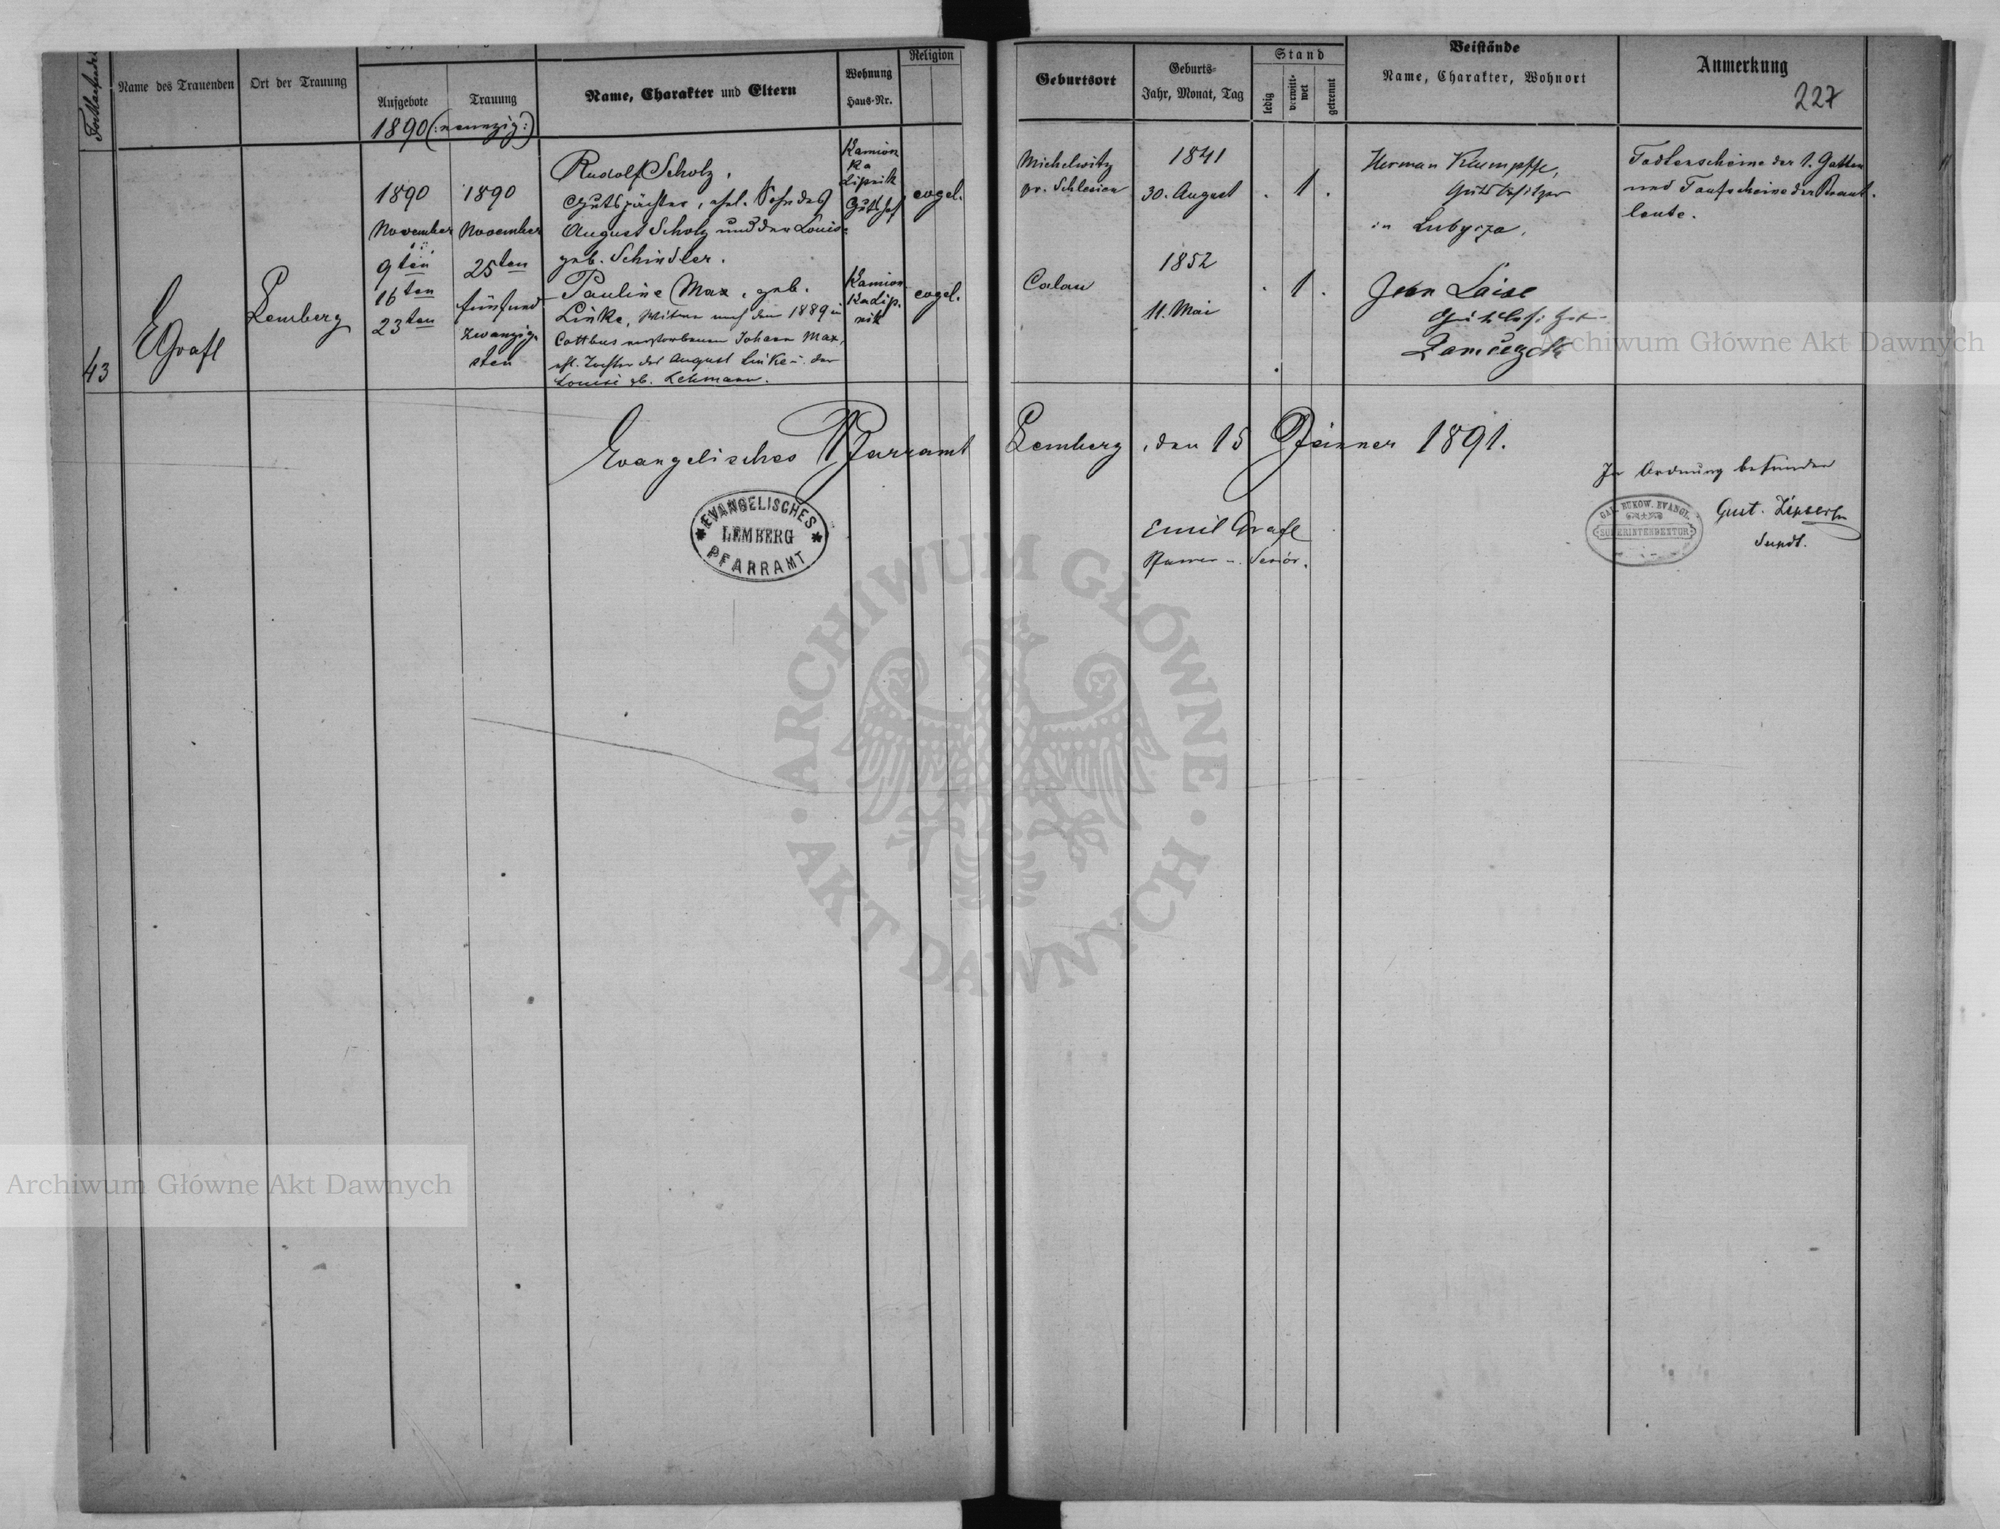 Name des Trauenden
Ort der Trauung
Aufgebote
Trauung
Name, Charakter und Eltern
Wohnung
Haus-Nr.
Religion
1890 (:neunzig:)
43
EGrafl
Lemberg
1890
November
9ten
16ten
23ten
1890
November
25ten
fünfund
zwanzig-
sten
Rudolf Scholz,
Gutspächter, ehel. Sohn des
August Scholz und der Louise
geb. Schindler.
Pauline Max, geb.
Linke, Witwe nach dem 1889 in
Cottbus verstorbenen Johann Max,
ehl. Tochter des August Linke u. der
Louise gb. Lehmann.
Kamion
ka
Lipnik
Gutshof
Kamion
ka Lip-
nik
evgel.
evgel.
Evangelisches Pfarramt
EVANGELISCHES
LEMBERG
PFARRAMT
Geburtsort
Geburts-
Jahr, Monat, Tag
Stand
ledig
verwitt-
wet
getrennt
Beistände
Name, Charakter, Wohnort
Anmerkung
227
Michelwitz
pr. Schlesien
1841
30. August
. 1 .
Herman Klumpffe,
Gutsbesitzer
in Lubycza,
Todtenscheine der 1. Gatten
und Taufscheine der Braut-
leute.
Calau
1852
11. Mai
. 1 .
Jean
Gutsbesitzer
Lemberg, den 15 Jänner 1891.
Emil Grafl
Pfarrer u. Senior.
In Ordnung befunden
GAL. BUKOW. EVANGL.
SUPERINTENDENTUR
Gust.
Supdt.
Archiwum Główne Akt Dawnych
ARCHIWUM GŁÓWNE
AKT DAWNYCH
Archiwum Główne Akt Dawnych